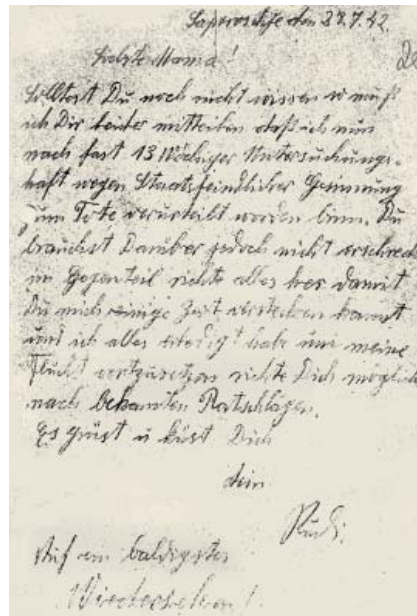 Saporoschje den 28.7.42.
Liebste Mama!
Solltest Du noch nicht wissen so muß
ich Dir leider mitteilen daß ich nun
nach fast 13 Wöchiger Untersuchungs-
haft wegen Staatsfeindlicher Gesinnung
zum Tote verurteilt worden binn. Du
brauchst Darüber jedoch nicht erschreck
im Gegenteil richte alles her damit
Du mich einige Zeit verstecken kannst
und ich alles erledigt habe um meine
Flucht vortzusetzen richte Dich möglich
nach bekannten Ratschlägen.
Es grüst u küst Dich
dein
Rudi.
Auf ein baldigstes
Wiedersehen!